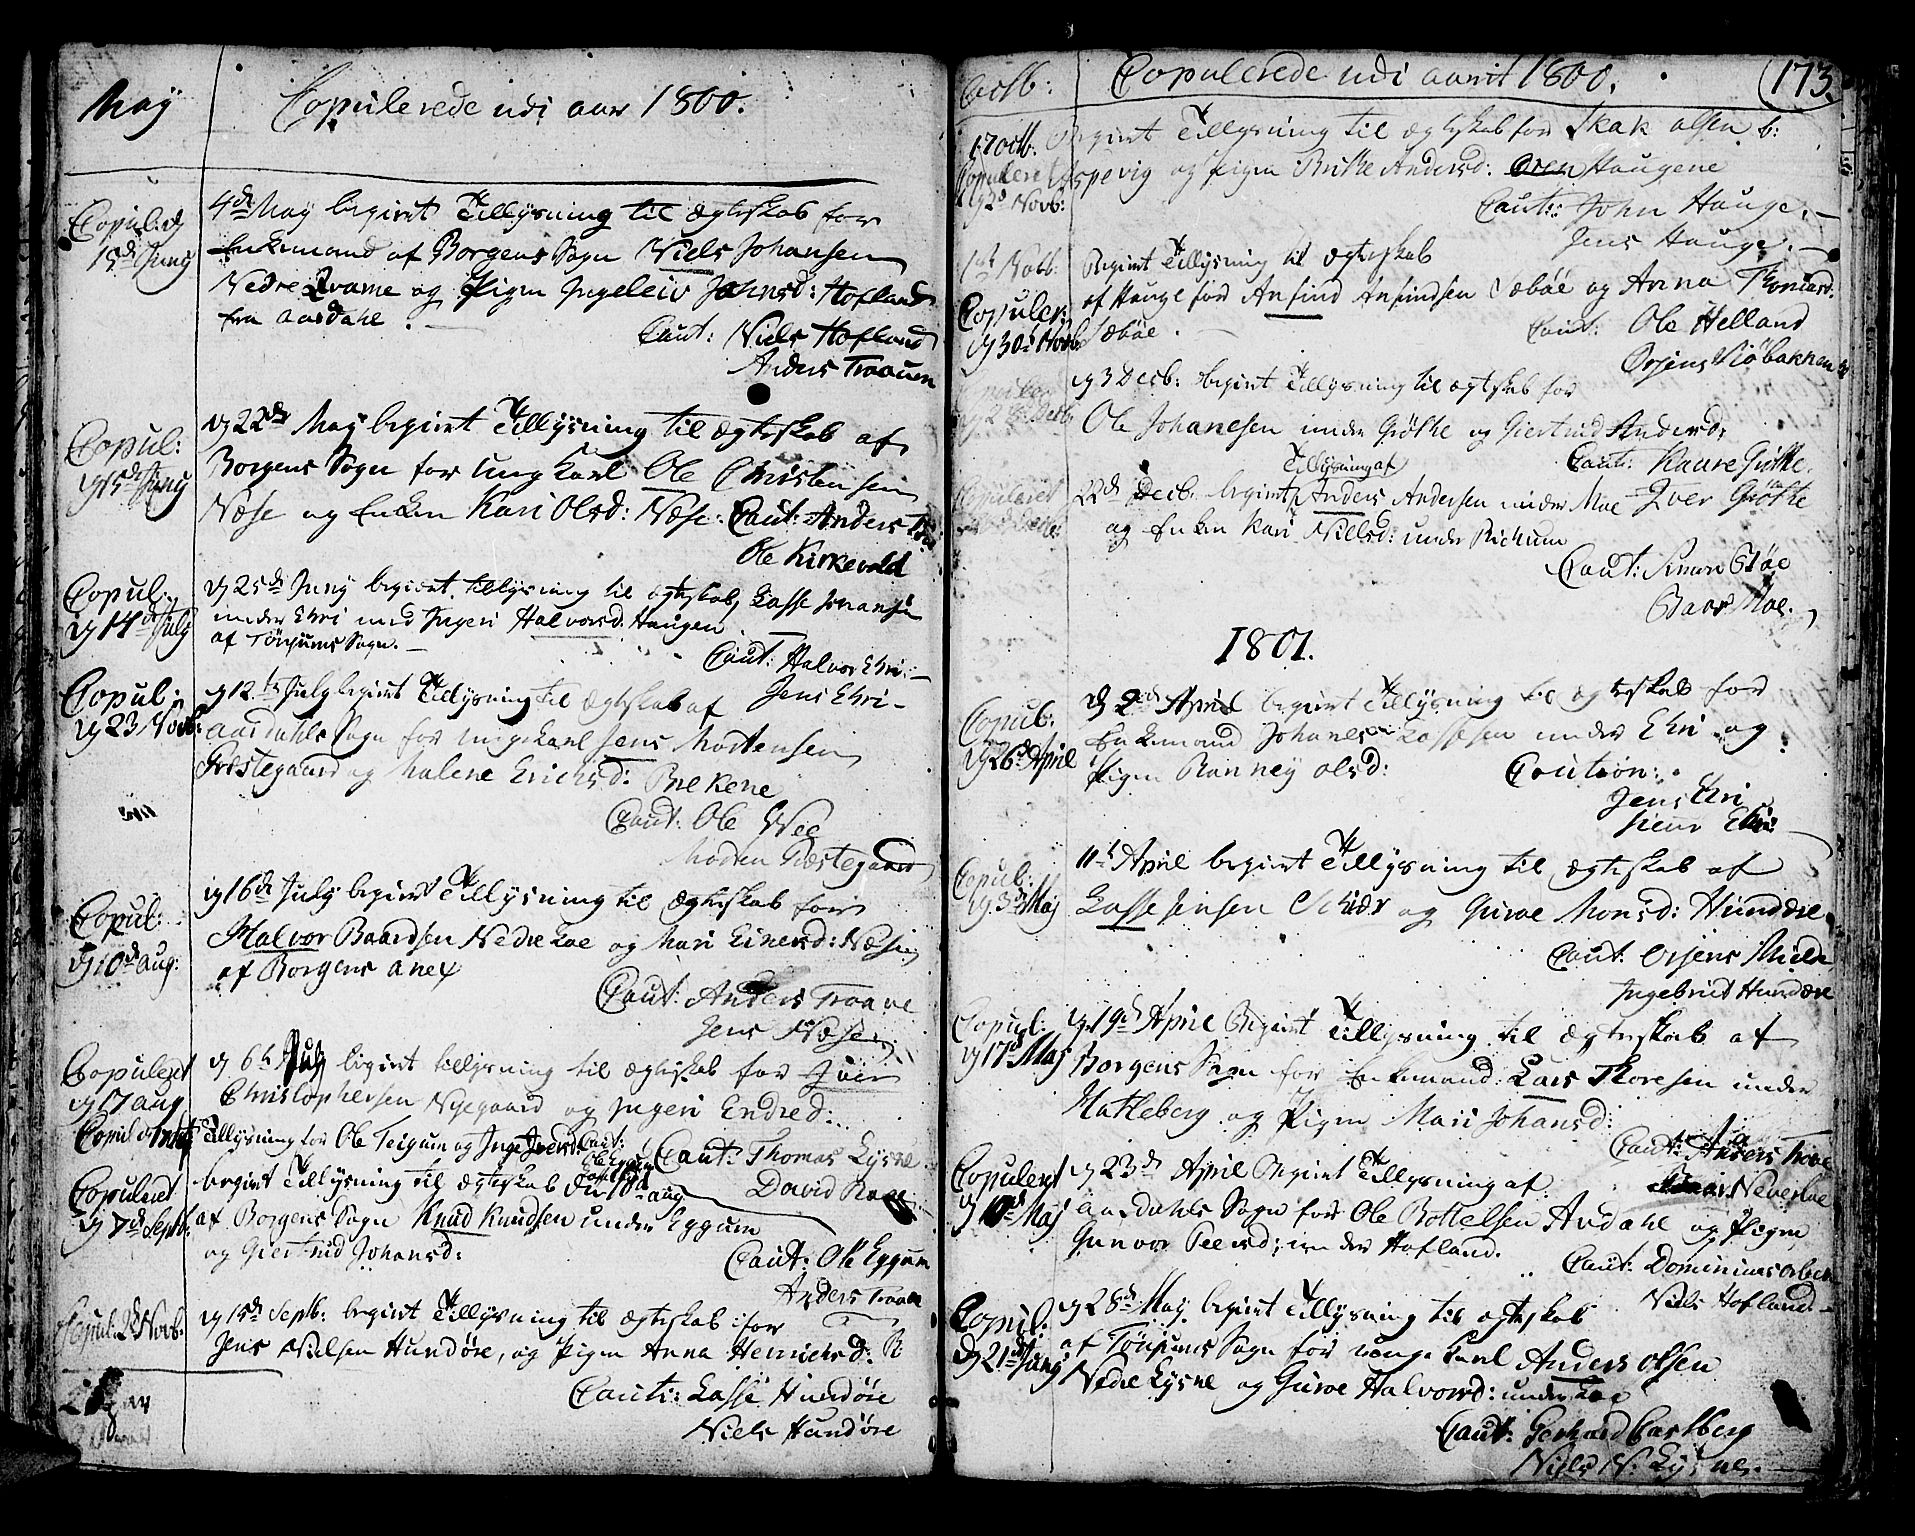 May
Copulerede udi aar 1800.
Copul: d
15de Juny
4de May begiert Tillysning til ægteskab for
Enkemand af Borgens Sogn Niels Johansen
Nedre Qvame og Pigen Ingeleiv Johnsd: Hofland
fra aardahl.
Caut: Niels Hofland
Anders Traauen
Copul:
d 15de Juny
d 22de May begiert Tillysning til ægteskab af
Borgens Sogn for Ungkarl Ole Christensen
Næse og Enken Kari Olsd: Næse. Caut: Anders
Ole Kirkevold
Copul:
d 14de July
d 25de Juny begiert tillysning til ægteskab Lasse Johansen
under Ehri med Ingeri Halvorsd. Haugen
af Tönjums Sogn.
Caut: Halvor Ehri
Jens Ehri
Copul:
d 23 Novb:
d 12te July begiert Tillysning til ægteskab af
aardahls Sogn for ungkarl Jens Mortensen
Præstegaard og Malene Erichsd: Brekene
Caut: Ole Wee
Morten Præstegaard
Copul:
d 10de aug:
d 16de July begiert Tillysning til ægteskab for
Halvor Baardsen Nedre Loe og Mari Einersd: Næse
af Borgens anex
Caut: Anders Traave
Jens Næse
Copuleret
d 17 aug
d 6te begiert tillysning til ægteskab for Iver
Christophersen Nyegaard og Ingeri Endred:
Tillysning for Ole Teigum og Inge Caut:
Ole Eggum
Caut: Thomas Lysne
David
Copuleret
d 7de Septb:
begiert Tillysning til ægteskab 10de aug
af Borgens Sogn Knud Knudsen under Eggum
og Giertrud Johansd:
Caut: Ole Eggum
Anders Traave
Copul: 2de Novb.
d 15de Septb: begiert Tillysning til ægteskab for
Jens Nielsen Hundöre, og Pigen Anna Henrichsd:
Caut: Lasse Hundöre
Niels Hundöre
Octb:
Copulerede udi aaret 1800.
173.
17 Octb: Begiert Tillysning til ægteskab for Skak Olsen
Copuleret Espevig og Pigen Britte Andersd: Haugene
d 2d Novb:
Caut: John Hauge.
Jens Hauge.
1st Novb: Begiert Tillysning til ægteskab
af Hauge for Ansind Ansindsen Sæböe og Anna
Copuler:
d 30d Novb: Sæböe.
Caut: Ole Helland
Örjens
d 3 Decb: begiert Tillysning til ægteskab for
Ole Johanesen under Gröthe og Giertrud Andersd:
Caut: Kaare Gröthe
Iver Gröthe
Copuleret
Tillysning af
22de Decb. begiert Anders Andersen under Moe
og Enken Kari Nielsd: under Rickum
Caut: Stöe
Baar Moe.
1801.
Copul:
d 26d April
d 2de April begiert Tillysning til ægteskab for
Enkemand Johanes Lassesen under Ehri og
Pigen Ranney Olsd:
Caution:
Jens Ehri
Ehri
Copul:
d 3d Maj
11te April begiert Tillysning til ægteskab af
Lasse Jensen Schiær og Guroe Monsd: Hundöre
Caut: Örjens Mield
Ingebrit Hundöre
Copul:
d 17d Maj
d 19de April Begiert Tillysning til ægteskab af
Borgens Sogn for Enkemand: Lars Thoresen under
Hatleberg og Pigen Mari Johansd:
Caut: Anders
Neverloe
Copuleret
d Maj
d 23de April Begiert Tillysning af
aardahls Sogn for Ole Bottelsen Ardahl og Pigen
Gunvor Peersd: under Hofland.
Caut: Dominius
Niels Hofland
Copul:
d 21de Juny
d 28de May begiert Tillysning til ægteskab
af Tönjums Sogn for unge karl Anders Olsen
Nedre Lysne og Guroe Halvorsd: under Loe
Caut: Gerhard Carlberg
Niels N: Lysne.